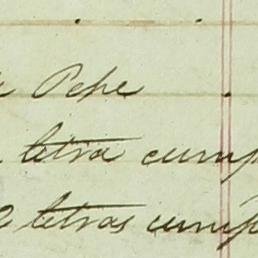 Pepe
letra cump
letras cump